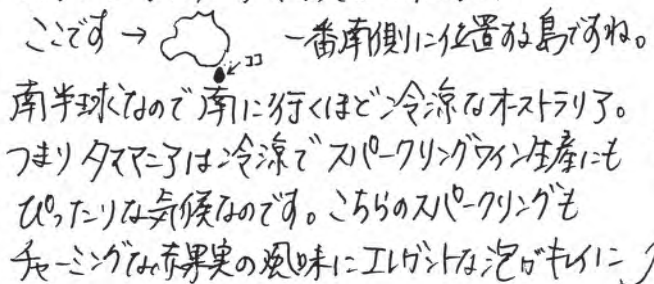 ここです→ ココ 一番南側に位置する島ですね。
南半球なので南に行くほど冷涼なオーストラリア。
つまりタスマニアは冷涼でスパークリングワイン生産にも
ぴったりな気候なのです。こちらのスパークリングも
チャーミングな赤果実の風味にエレガントな泡がキレイに